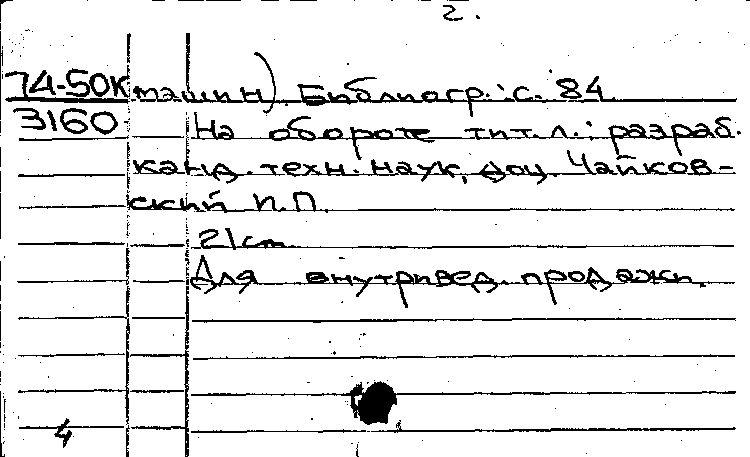 2.
74-50К машин). Библиогр.: с. 84
3160 На обороте тит. л.: разраб.
канд. техн. наук, доц. Чайков-
ский П.П.
21 cm
Для внутривед. продажи.
4